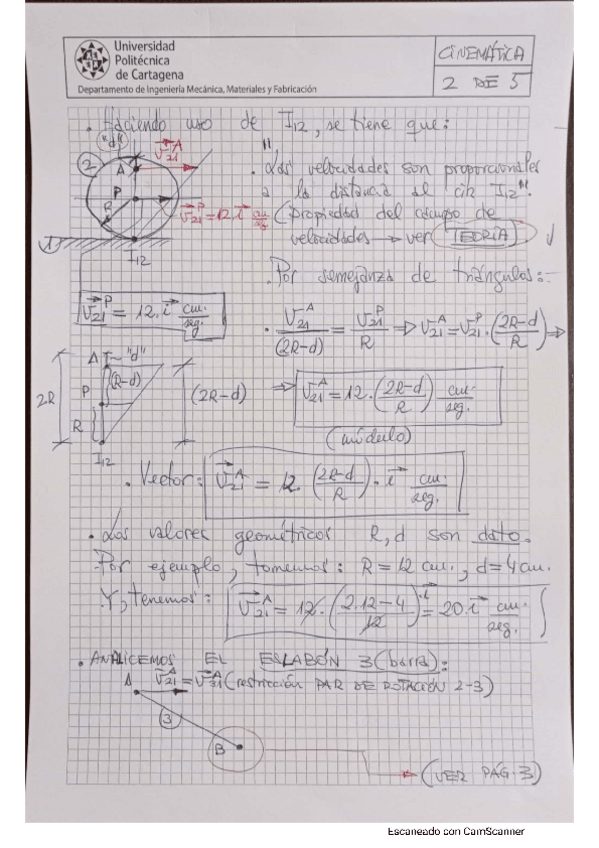 Universidad
Politécnica
de Cartagena
Departamento de Ingeniería Mecánica, Materiales y Fabricación
CINEMÁTICA
2 DE 5
. Haciendo uso de I12, se tiene que:
"d"
V⃗21^A
2
A
P
R
V⃗21^P = 12 i⃗ cm/seg
1
I12
. "Las velocidades son proporcionales
a la distancia al cir I12".
(Propiedad del campo de
velocidades → ver TEORÍA)
. Por semejanza de triángulos:
V⃗21^P = 12. i⃗ cm./seg.
. V21^A/(2R-d) = V21^P/R ⇒ V21^A = V21^P . (2R-d/R) ⇒
A "d"
(R-d)
2R
P
R
I12
(2R-d)
⇒ V21^A = 12 . (2R-d/R) cm/seg.
(módulo)
. Vector: V⃗21^A = 12. (2R-d/R) . i⃗ cm./seg.
. Los valores geométricos R, d son dato.
Por ejemplo, tomemos: R = 12 cm., d = 4 cm.
Y, tenemos: V⃗21^A = 12. (2.12-4/12) . i⃗ = 20. i⃗ cm/seg.
. ANALICEMOS EL ESLABÓN 3 (barra):
A V⃗21^A = V⃗31^A (restricción PAR DE ROTACIÓN 2-3)
3
B
(VER PÁG. 3)
Escaneado con CamScanner